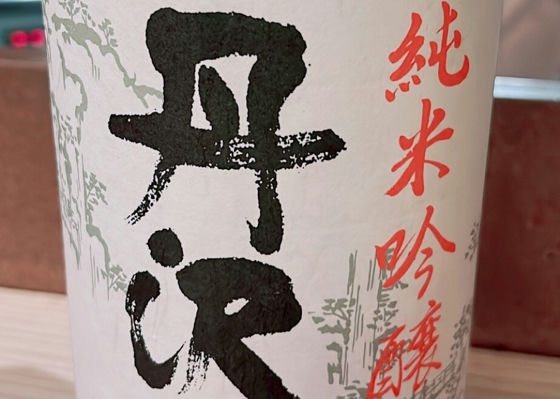 純米吟醸
丹沢